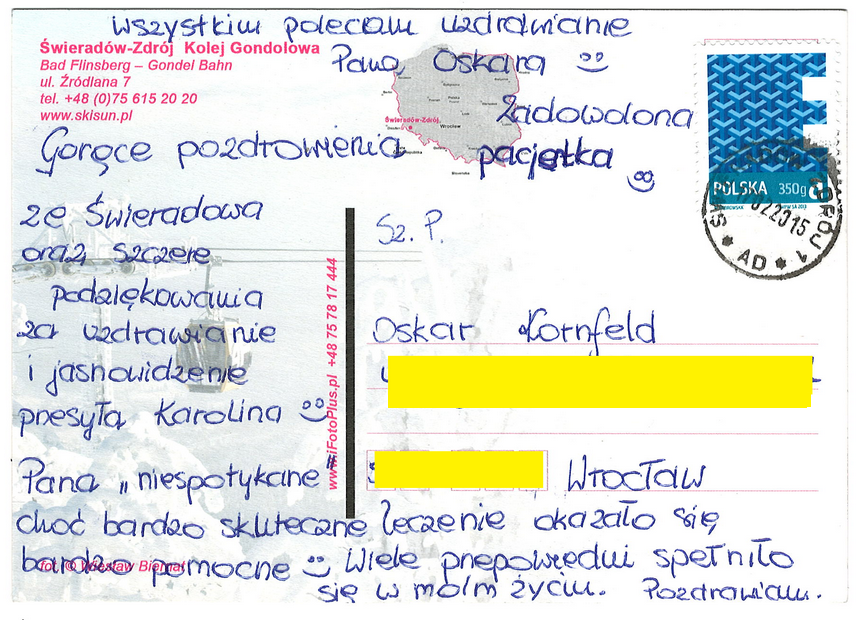 wszystkim polecam uzdrawianie
Pana Oskara
Zadowolona
pacjentka
Świeradów-Zdrój Kolej Gondolowa
Bad Flinsberg – Gondel Bahn
ul. Źródlana 7
tel. +48 (0)75 615 20 20
www.skisun.pl
Gorące pozdrowienia
ze Świeradowa
oraz szczere
podziękowania
za uzdrawianie
i jasnowidzenie
przesyła Karolina
Pana „niespotykane"
choć bardzo skuteczne leczenie okazało się
bardzo pomocne Wiele przepowiedni spełniło
się w moim życiu. Pozdrawiam.
fot. © Wiesław Biernat
www.iFotoPlus.pl +48 75 78 17 444
Świeradów-Zdrój
Wrocław
POLSKA 350g
AD
Sz. P.
Oskar Kornfeld
Wrocław